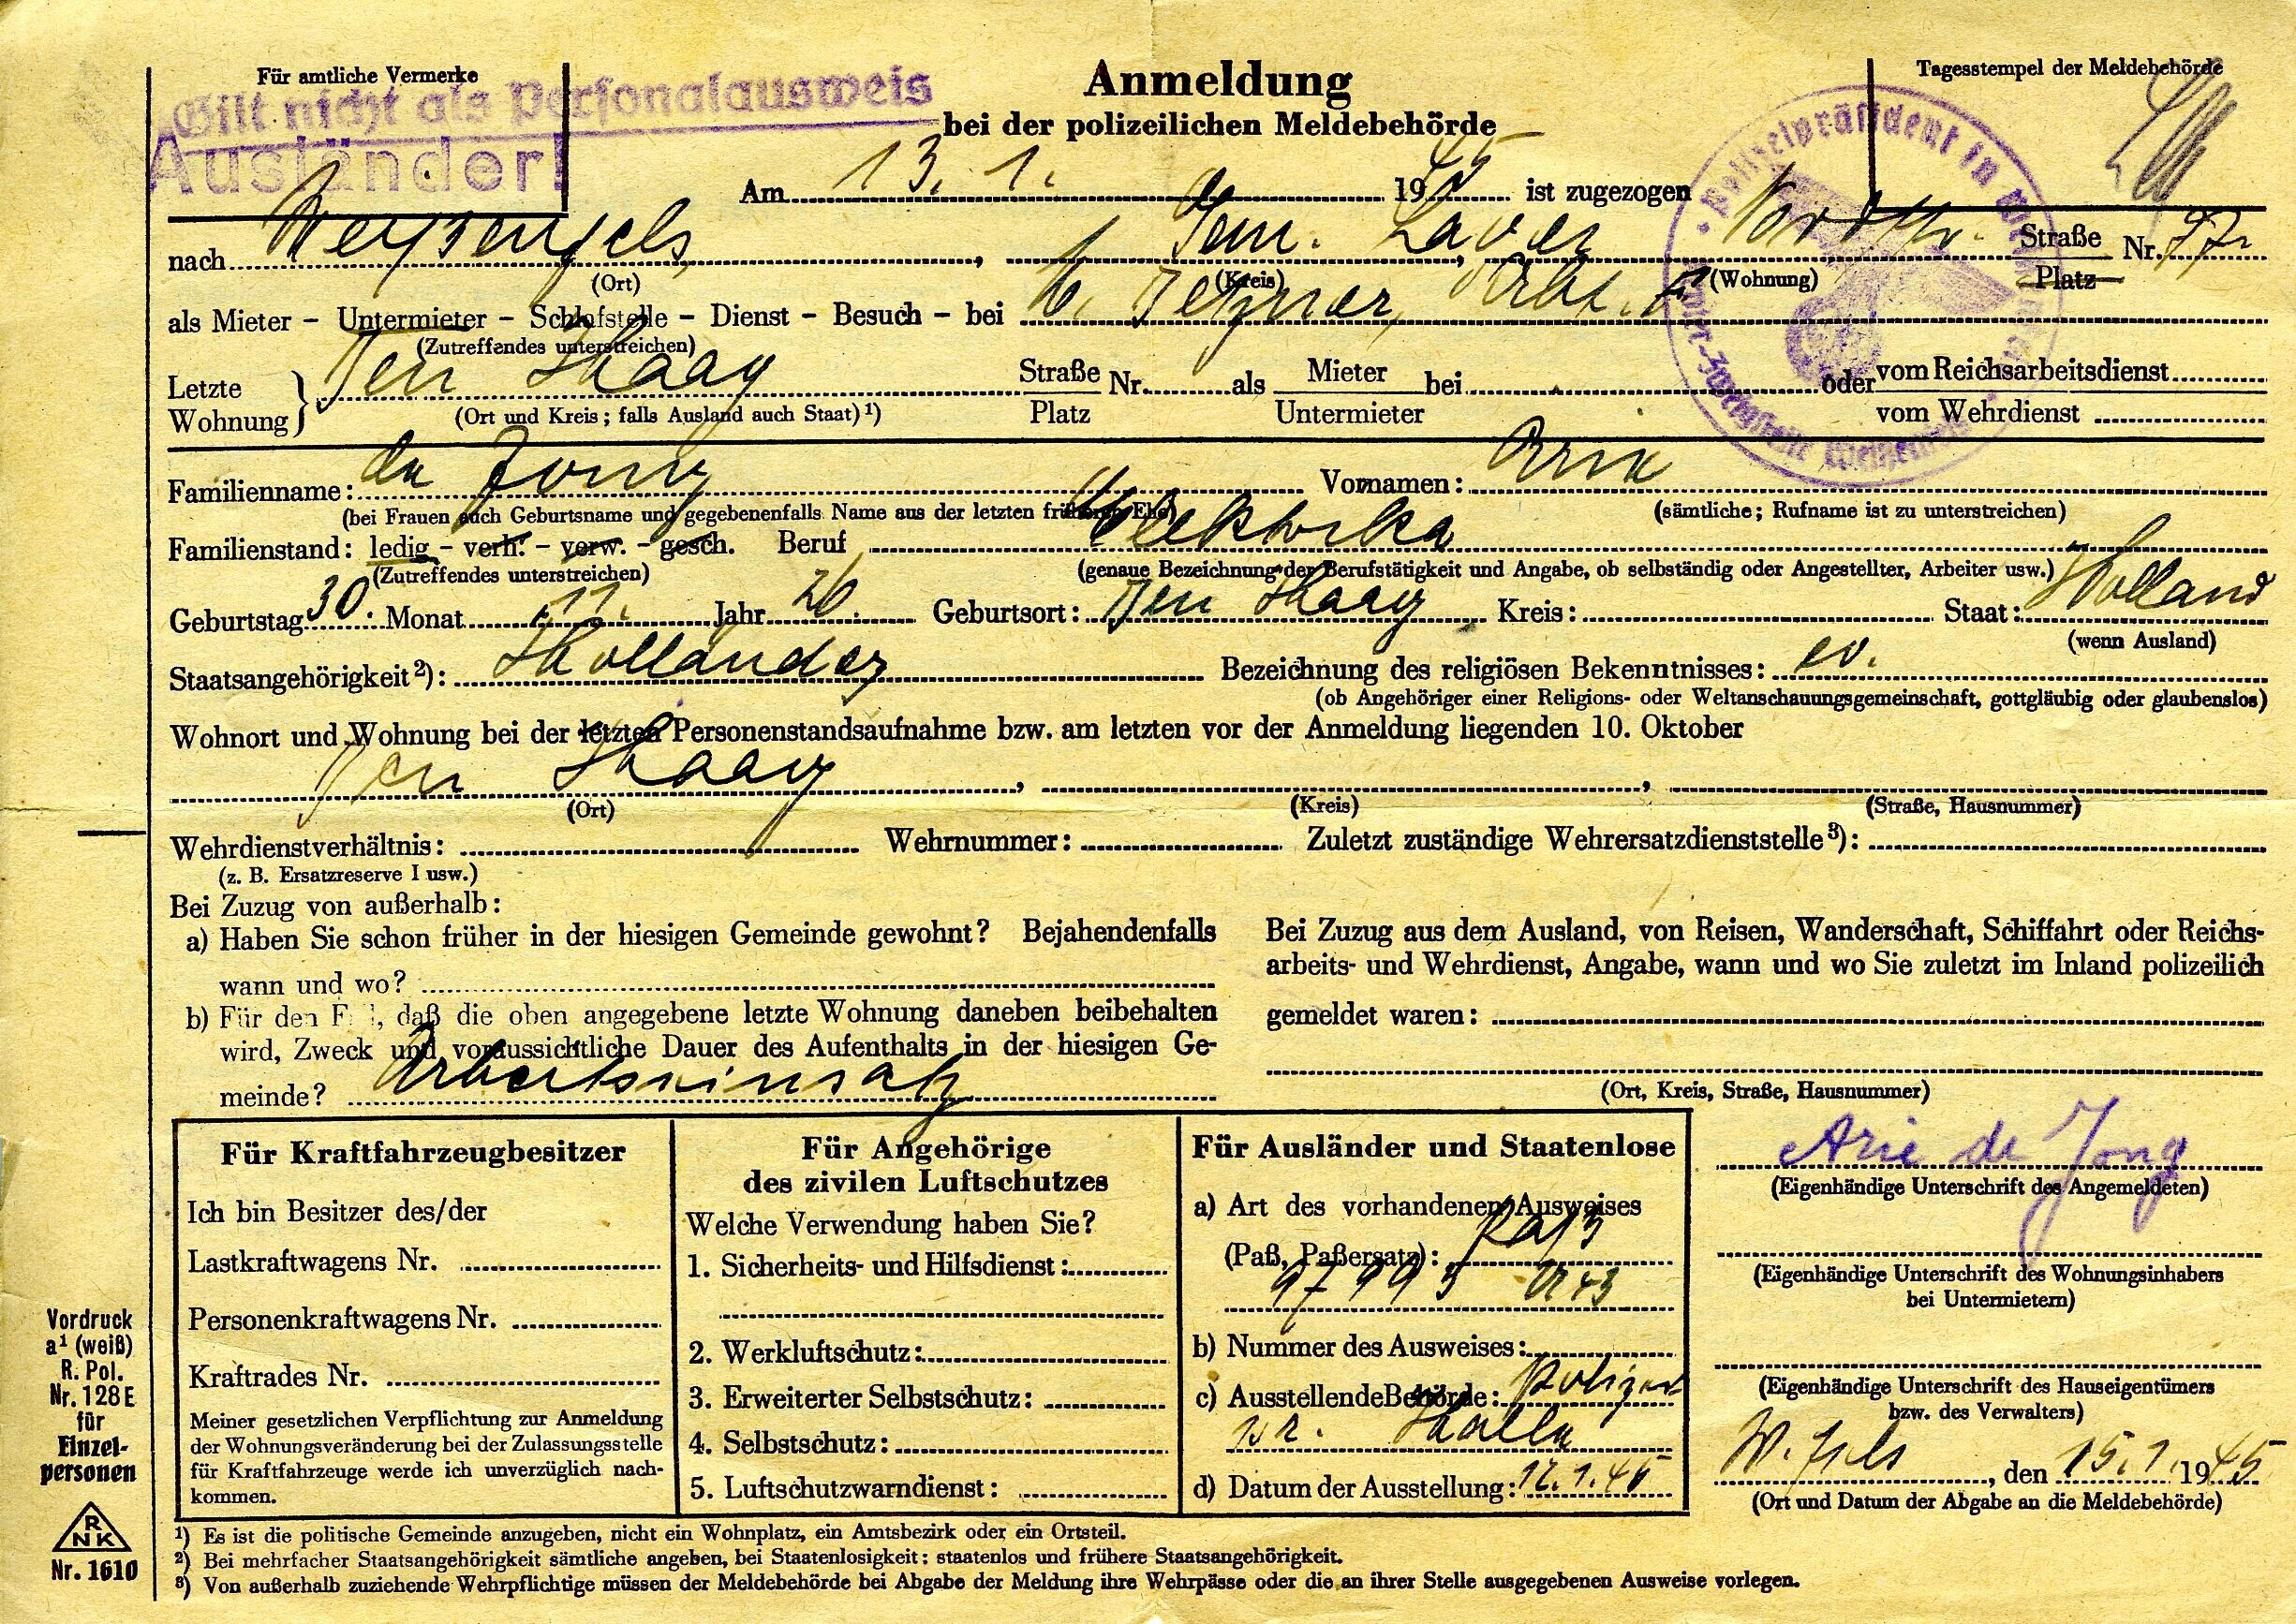 Für amtliche Vermerke
Gilt nicht als Personalausweis
Ausländer!
Anmeldung
bei der polizeilichen Meldebehörde
Tagesstempel der Meldebehörde
Polizeipräsident in
Am 13. 1. 1945 ist zugezogen
nach Weißenfels, Gem. Lager, Nordstr. Straße Nr. 77
Platz
(Ort) (Kreis) (Wohnung)
als Mieter – Untermieter – Schlafstelle – Dienst – Besuch – bei
(Zutreffendes unterstreichen)
Letzte Wohnung } Den Haag Straße Platz Nr. als Mieter Untermieter bei oder vom Reichsarbeitsdienst
vom Wehrdienst
(Ort und Kreis; falls Ausland auch Staat) ¹)
Familienname: de Jong Vornamen: Arie
(bei Frauen auch Geburtsname und gegebenenfalls Name aus der letzten früheren Ehe) (sämtliche; Rufname ist zu unterstreichen)
Familienstand: ledig – verh. – verw. – gesch. Beruf
(Zutreffendes unterstreichen) (genaue Bezeichnung der Berufstätigkeit und Angabe, ob selbständig oder Angestellter, Arbeiter usw.)
Geburtstag 30. Monat 11. Jahr 26. Geburtsort: Den Haag Kreis: Staat: Holland
(wenn Ausland)
Staatsangehörigkeit ²): Holländer Bezeichnung des religiösen Bekenntnisses: ev.
(ob Angehöriger einer Religions- oder Weltanschauungsgemeinschaft, gottgläubig oder glaubenslos)
Wohnort und Wohnung bei der letzten Personenstandsaufnahme bzw. am letzten vor der Anmeldung liegenden 10. Oktober
Den Haag
(Ort) (Kreis) (Straße, Hausnummer)
Wehrdienstverhältnis: Wehrnummer: Zuletzt zuständige Wehrersatzdienststelle ³):
(z. B. Ersatzreserve I usw.)
Bei Zuzug von außerhalb:
a) Haben Sie schon früher in der hiesigen Gemeinde gewohnt? Bejahendenfalls
wann und wo?
b) Für den Fall, daß die oben angegebene letzte Wohnung daneben beibehalten
wird, Zweck und voraussichtliche Dauer des Aufenthalts in der hiesigen Ge-
meinde? Arbeitseinsatz
Bei Zuzug aus dem Ausland, von Reisen, Wanderschaft, Schiffahrt oder Reichs-
arbeits- und Wehrdienst, Angabe, wann und wo Sie zuletzt im Inland polizeilich
gemeldet waren:
(Ort, Kreis, Straße, Hausnummer)
Für Kraftfahrzeugbesitzer
Ich bin Besitzer des/der
Lastkraftwagens Nr.
Personenkraftwagens Nr.
Kraftrades Nr.
Meiner gesetzlichen Verpflichtung zur Anmeldung
der Wohnungsveränderung bei der Zulassungsstelle
für Kraftfahrzeuge werde ich unverzüglich nach-
kommen.
Für Angehörige
des zivilen Luftschutzes
Welche Verwendung haben Sie?
1. Sicherheits- und Hilfsdienst:
2. Werkluftschutz:
3. Erweiterter Selbstschutz:
4. Selbstschutz:
5. Luftschutzwarndienst:
Für Ausländer und Staatenlose
a) Art des vorhandenen Ausweises
(Paß, Paßersatz): Paß
b) Nummer des Ausweises:
c) Ausstellende Behörde: Polizei
pr. Halle
d) Datum der Ausstellung: 12.1.45
Arie de Jong
(Eigenhändige Unterschrift des Angemeldeten)
(Eigenhändige Unterschrift des Wohnungsinhabers
bei Untermietern)
(Eigenhändige Unterschrift des Hauseigentümers
bzw. des Verwalters)
W.fels, den 15.1.1945
(Ort und Datum der Abgabe an die Meldebehörde)
Vordruck
a¹ (weiß)
R. Pol.
Nr. 128 E
für
Einzel-
personen
RNK
Nr. 1610
¹) Es ist die politische Gemeinde anzugeben, nicht ein Wohnplatz, ein Amtsbezirk oder ein Ortsteil.
²) Bei mehrfacher Staatsangehörigkeit sämtliche angeben, bei Staatenlosigkeit: staatenlos und frühere Staatsangehörigkeit.
³) Von außerhalb zuziehende Wehrpflichtige müssen der Meldebehörde bei Abgabe der Meldung ihre Wehrpässe oder die an ihrer Stelle ausgegebenen Ausweise vorlegen.